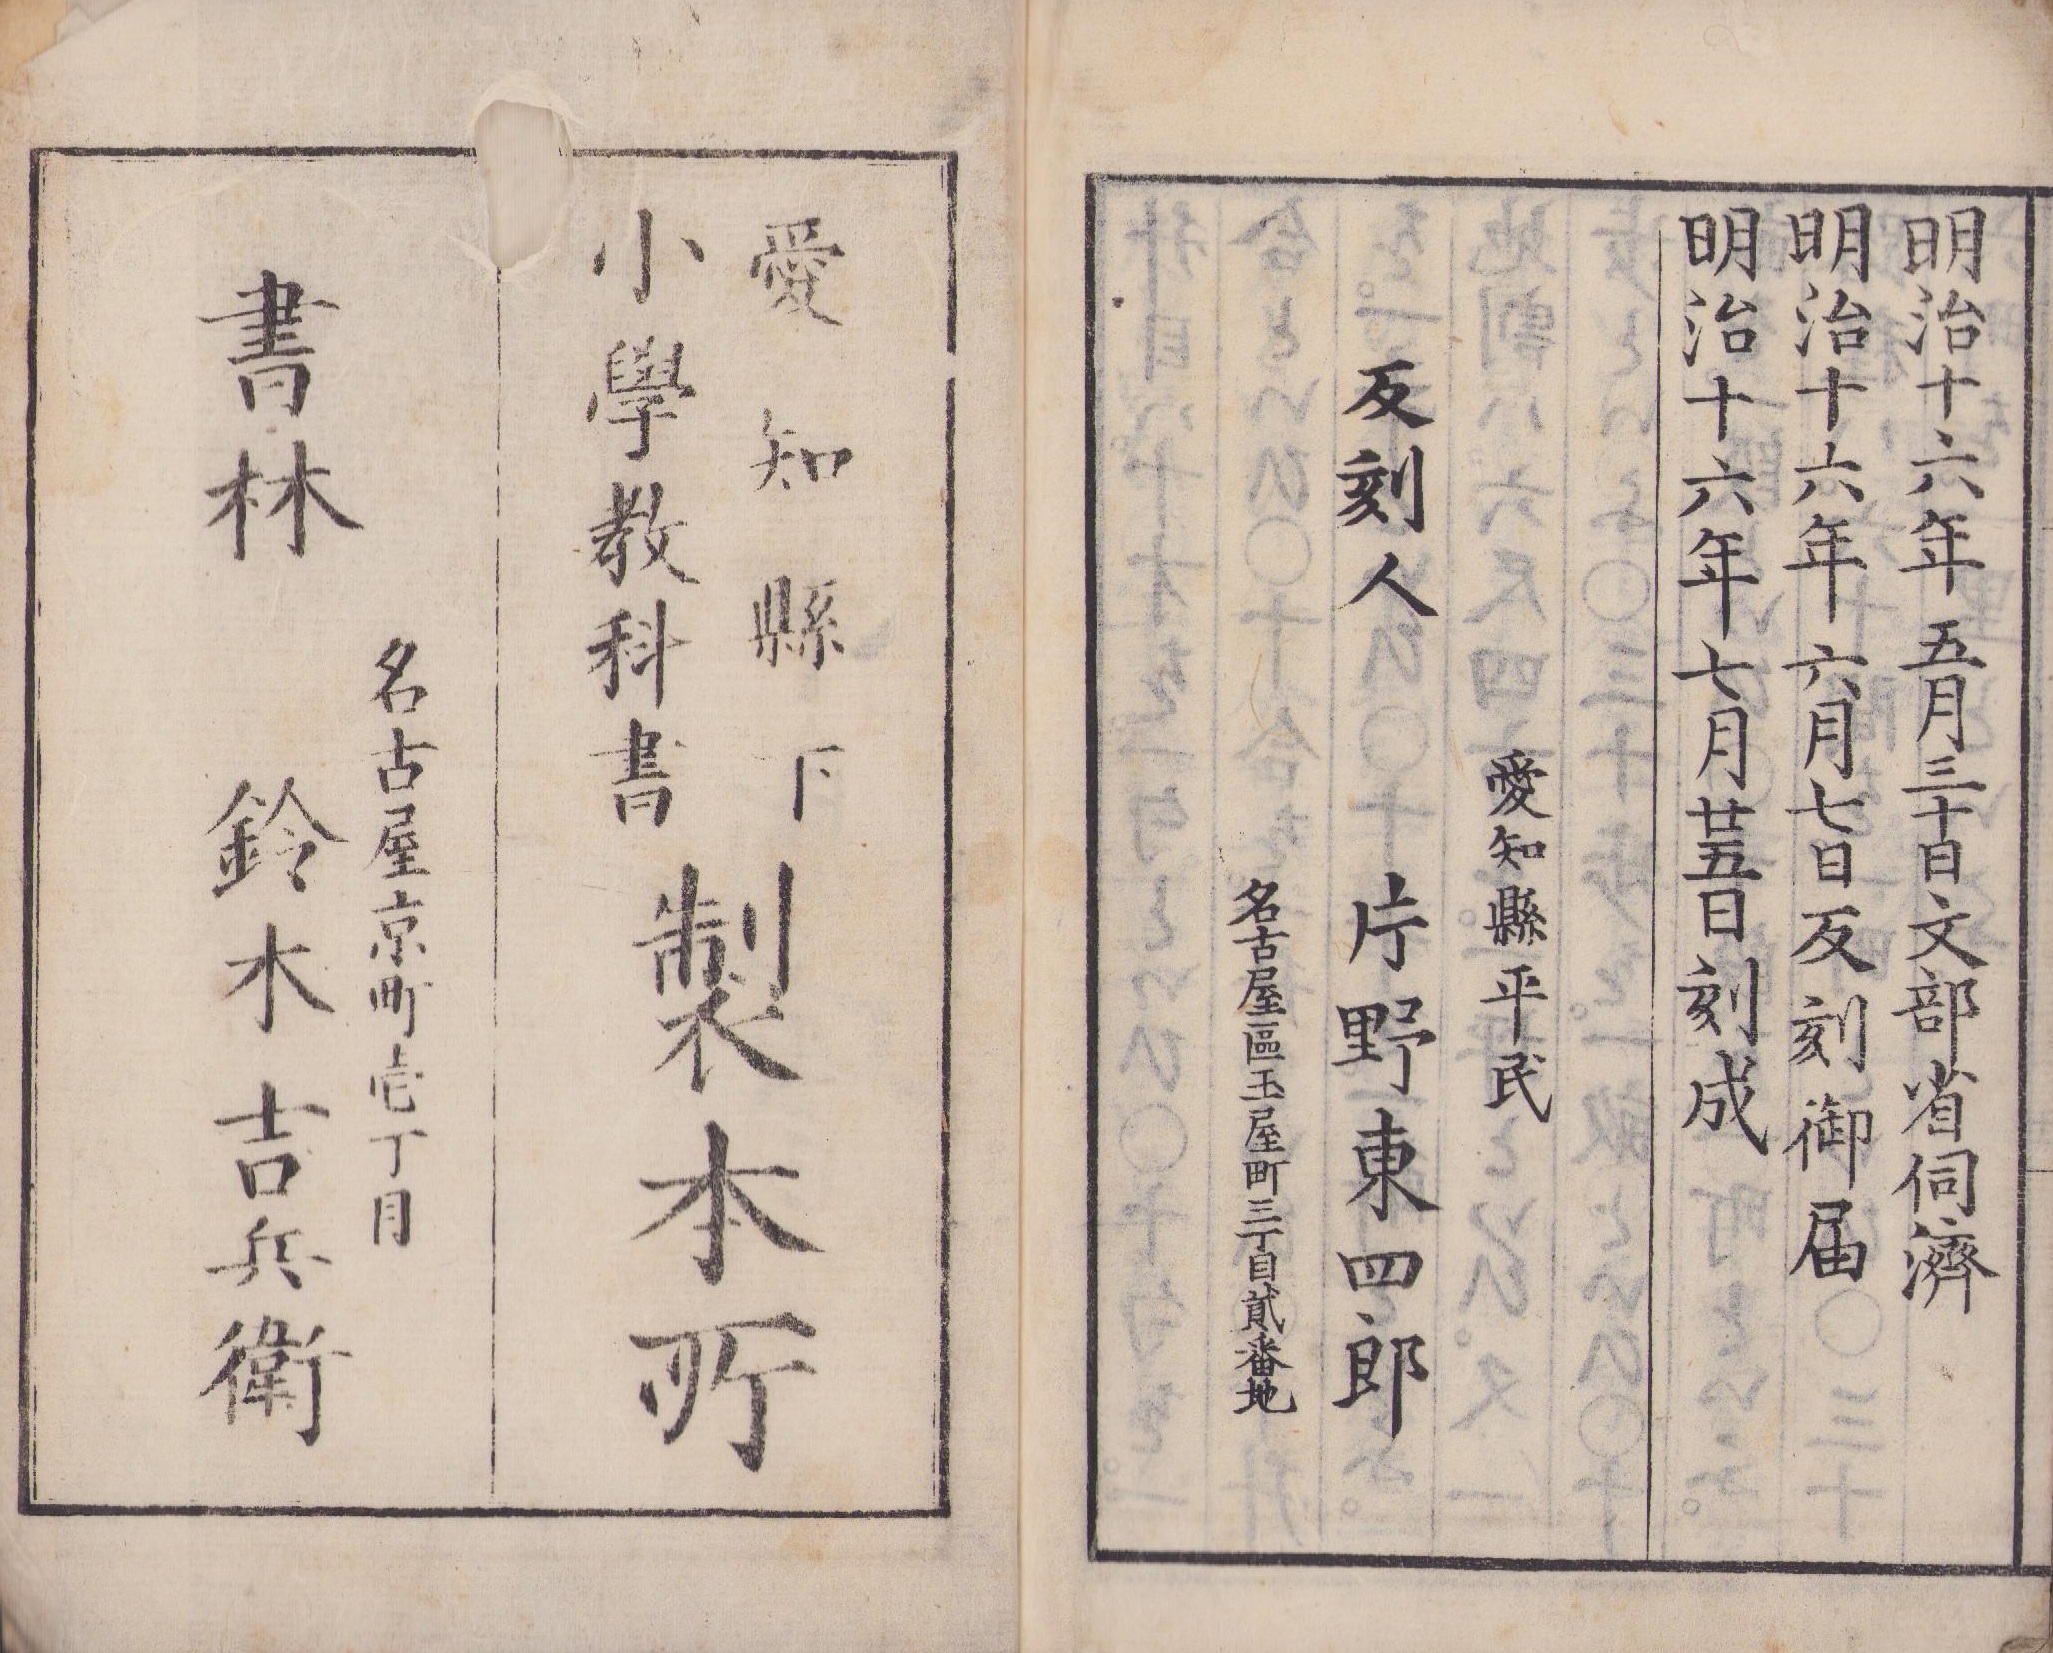 明治十六年五月三十日文部省伺濟
明治十六年六月七日反刻御届
明治十六年七月廿五日刻成
愛知縣平民
反刻人　片野東四郎
名古屋區玉屋町三丁目貳番地
愛知縣下
小學教科書
製本所
名古屋京町壱丁目
書林　鈴木吉兵衛